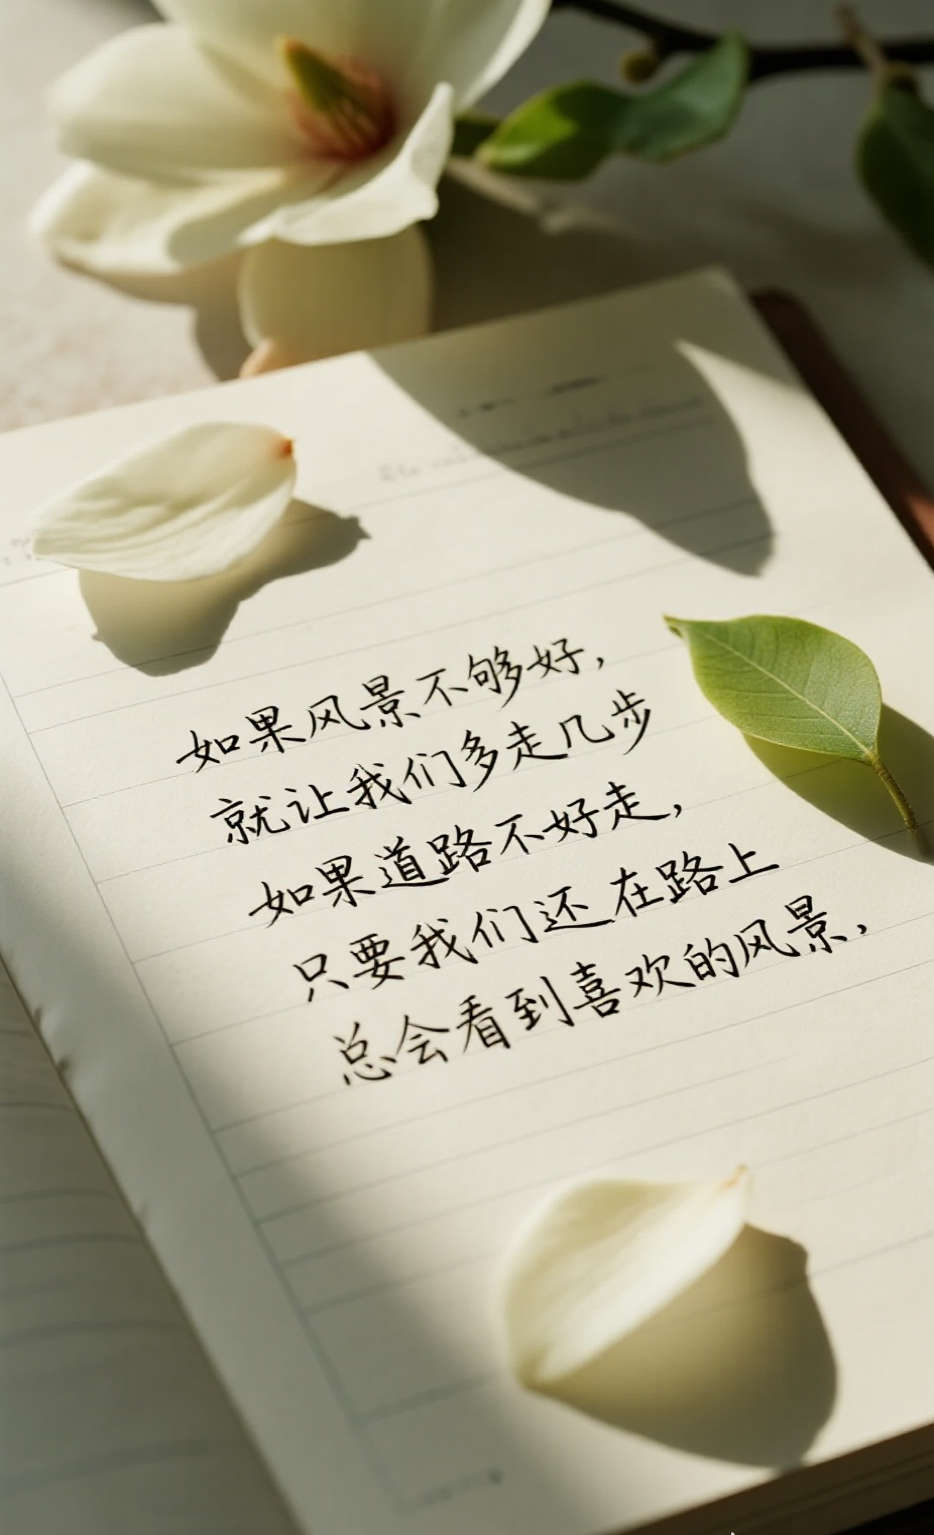 如果风景不够好，
就让我们多走几步
如果道路不好走，
只要我们还在路上
总会看到喜欢的风景，